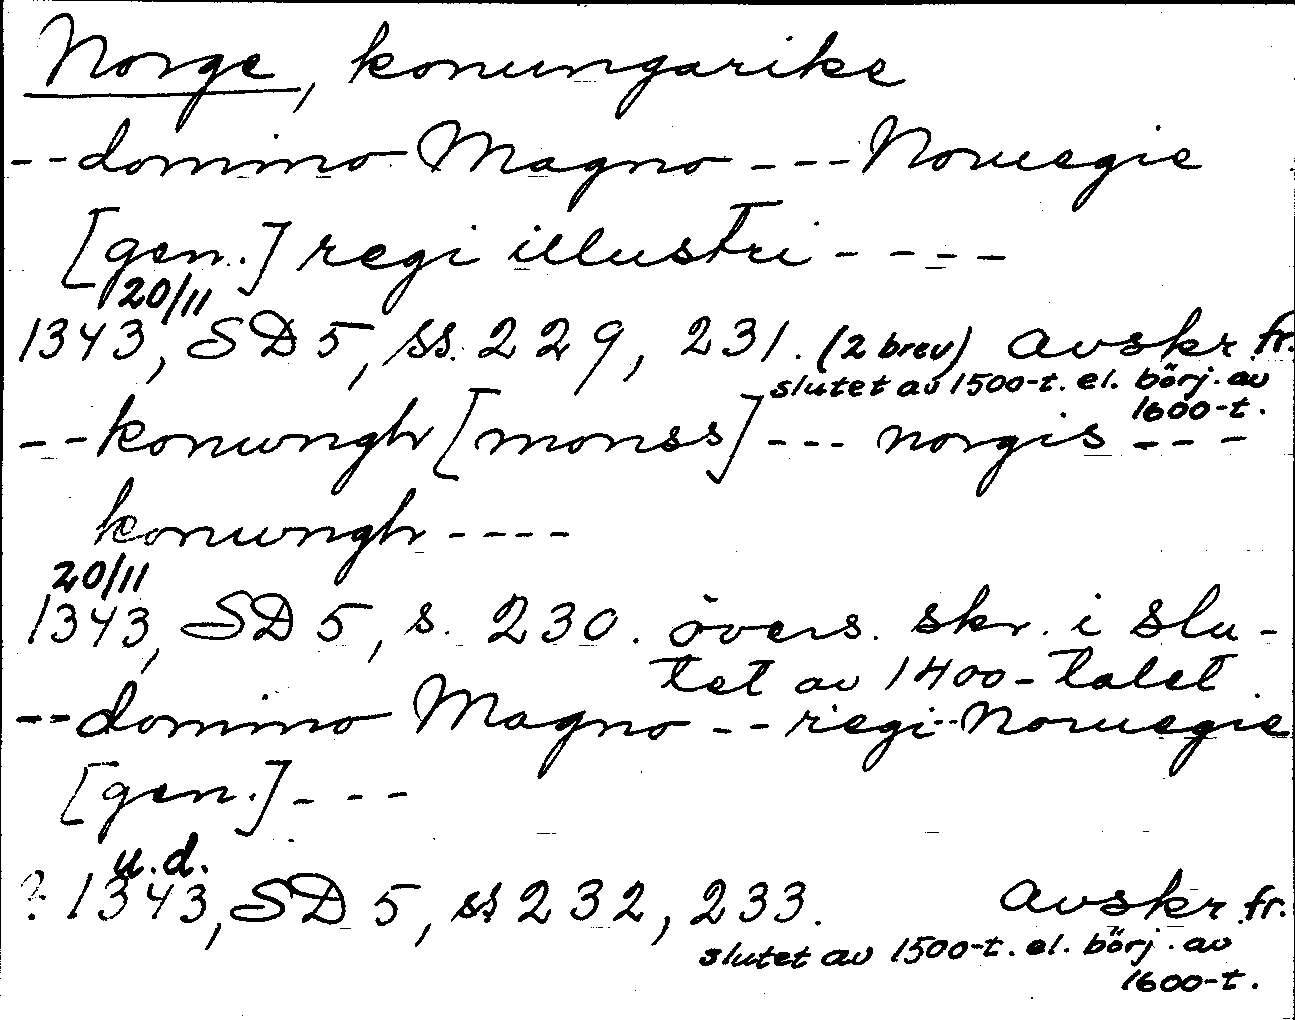 Norge, konungarike
--domino Magno --- Noruegie
[gen.] regi illustri ----
20/11
1343, SD 5, ss. 229, 231. (2 brev) Avskr fr.
slutet av 1500-t. el. börj. av
1600-t.
--konungh [monss] --- norgis ---
konungh ----
20/11
1343, SD 5, s. 230. övers. skr. i slu-
tet av 1400-talet.
--domino Magno -- regi -- Noruegie
[gen.] ---
u.d.
? 1343, SD 5, ss 232, 233. Avskr fr.
slutet av 1500-t. el. börj. av
1600-t.